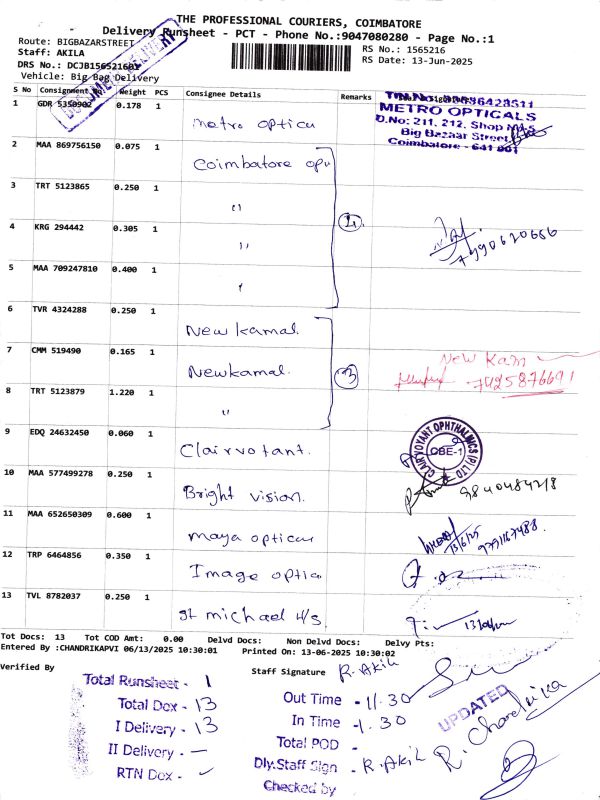 THE PROFESSIONAL COURIERS, COIMBATORE
Delivery Runsheet - PCT - Phone No.:9047080280 - Page No.:1
Route: BIGBAZARSTREET
RS No.: 1565216
Staff: AKILA
RS Date: 13-Jun-2025
DRS No.: DCJB156521601
Vehicle: Big Bag Delivery
S No Consignment No Weight PCS Consignee Details Remarks
1 GDR 5350902 0.178 1 Metro optica
TIN No: 33636423511
METRO OPTICALS
D.No: 211, 212, Shop No-5
Big Bazaar Street,
Coimbatore - 641 001
2 MAA 869756150 0.075 1 Coimbatore opti
3 TRT 5123865 0.250 1 "
4 KRG 294442 0.305 1 "
4
7990620666
5 MAA 709247810 0.400 1 "
6 TVR 4324288 0.250 1 New kamal.
7 CMM 519490 0.165 1 Newkamal.
3
New Kam
7425876691
8 TRT 5123879 1.220 1 "
9 EDQ 24632450 0.060 1 Clairvotant.
CLAIRVOYANT OPHTHALMICS (P) LTD
CBE-1
10 MAA 577499278 0.250 1 Bright vision.
11 MAA 652650309 0.600 1 maya optica
13/6/25
12 TRP 6464856 0.350 1 Image optica
13 TVL 8782037 0.250 1 st michael H/s
Tot Docs: 13 Tot COD Amt: 0.00 Delvd Docs: Non Delvd Docs: Delvy Pts:
Entered By :CHANDRIKAPVI 06/13/2025 10:30:01 Printed On: 13-06-2025 10:30:02
Verified By
Staff Signature R. Akil
Total Runsheet - 1
Total Dox - 13
I Delivery - 13
II Delivery - —
RTN Dox - ✓
Out Time - 11.30
In Time - 1.30
Total POD -
Dly.Staff Sign - R. Akil
Checked by
UPDATED
R. Chandrika